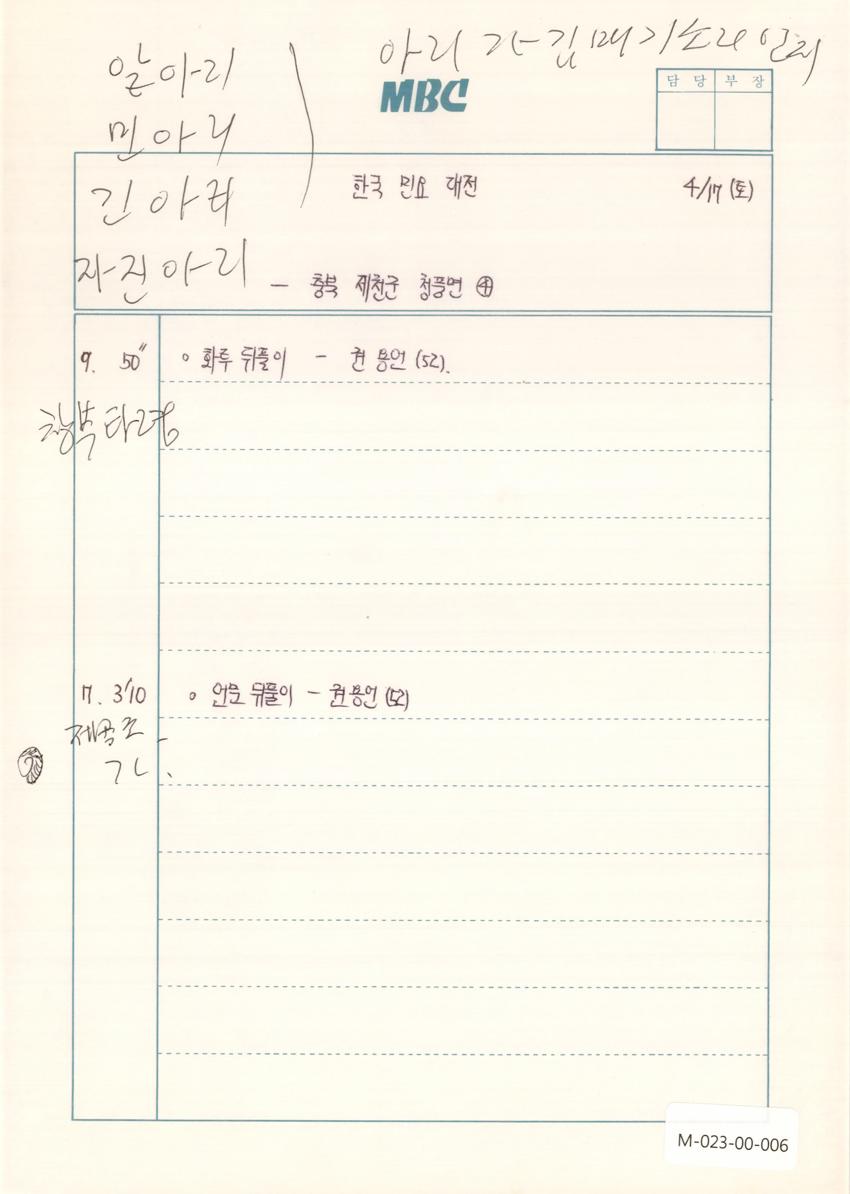 아리 가 김매기소리인지
알아리
민아리
긴아리
자진아리
MBC
담당 부장
한국 민요 대전 4/17 (토)
- 충북 제천군 청풍면 ④
9. 50" ○ 화투 뒤풀이 - 권용언 (52).
창부타령
17. 3'10 ○ 언문 뒤풀이 - 권용언 (52)
M-023-00-006